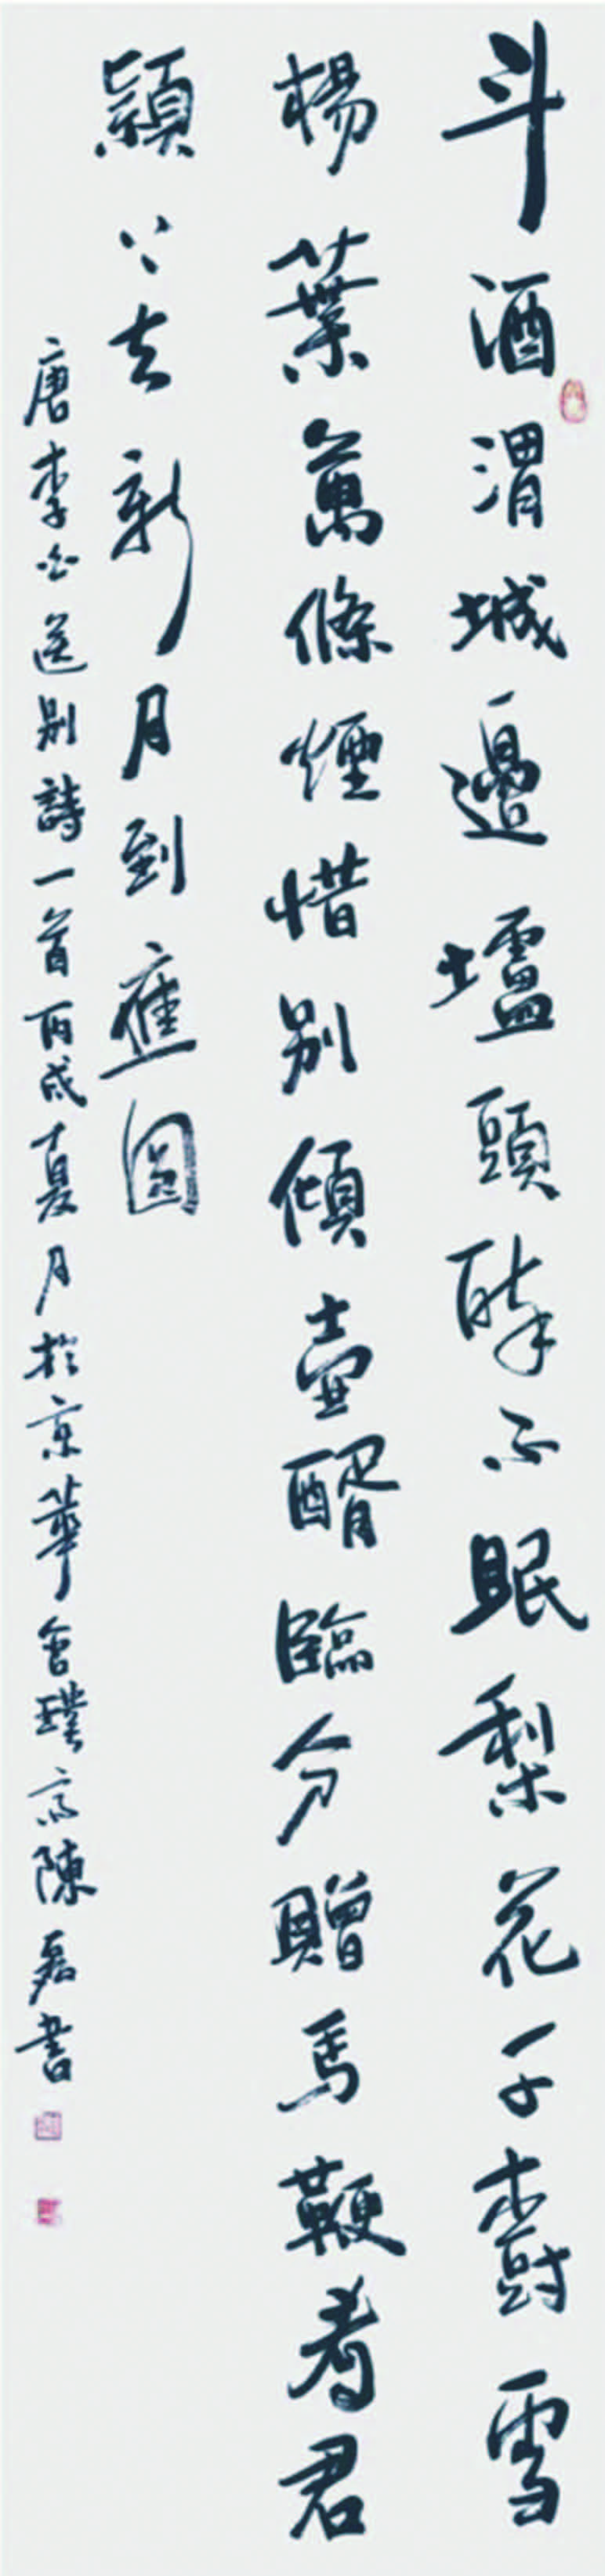 斗酒渭城邊壚頭醉不眠梨花千樹雪
楊葉萬條煙惜別傾壺醑臨分贈馬鞭看君
潁上去新月到應圓
唐李白送別詩一首丙戌夏月於京華含璞齋陳磊書